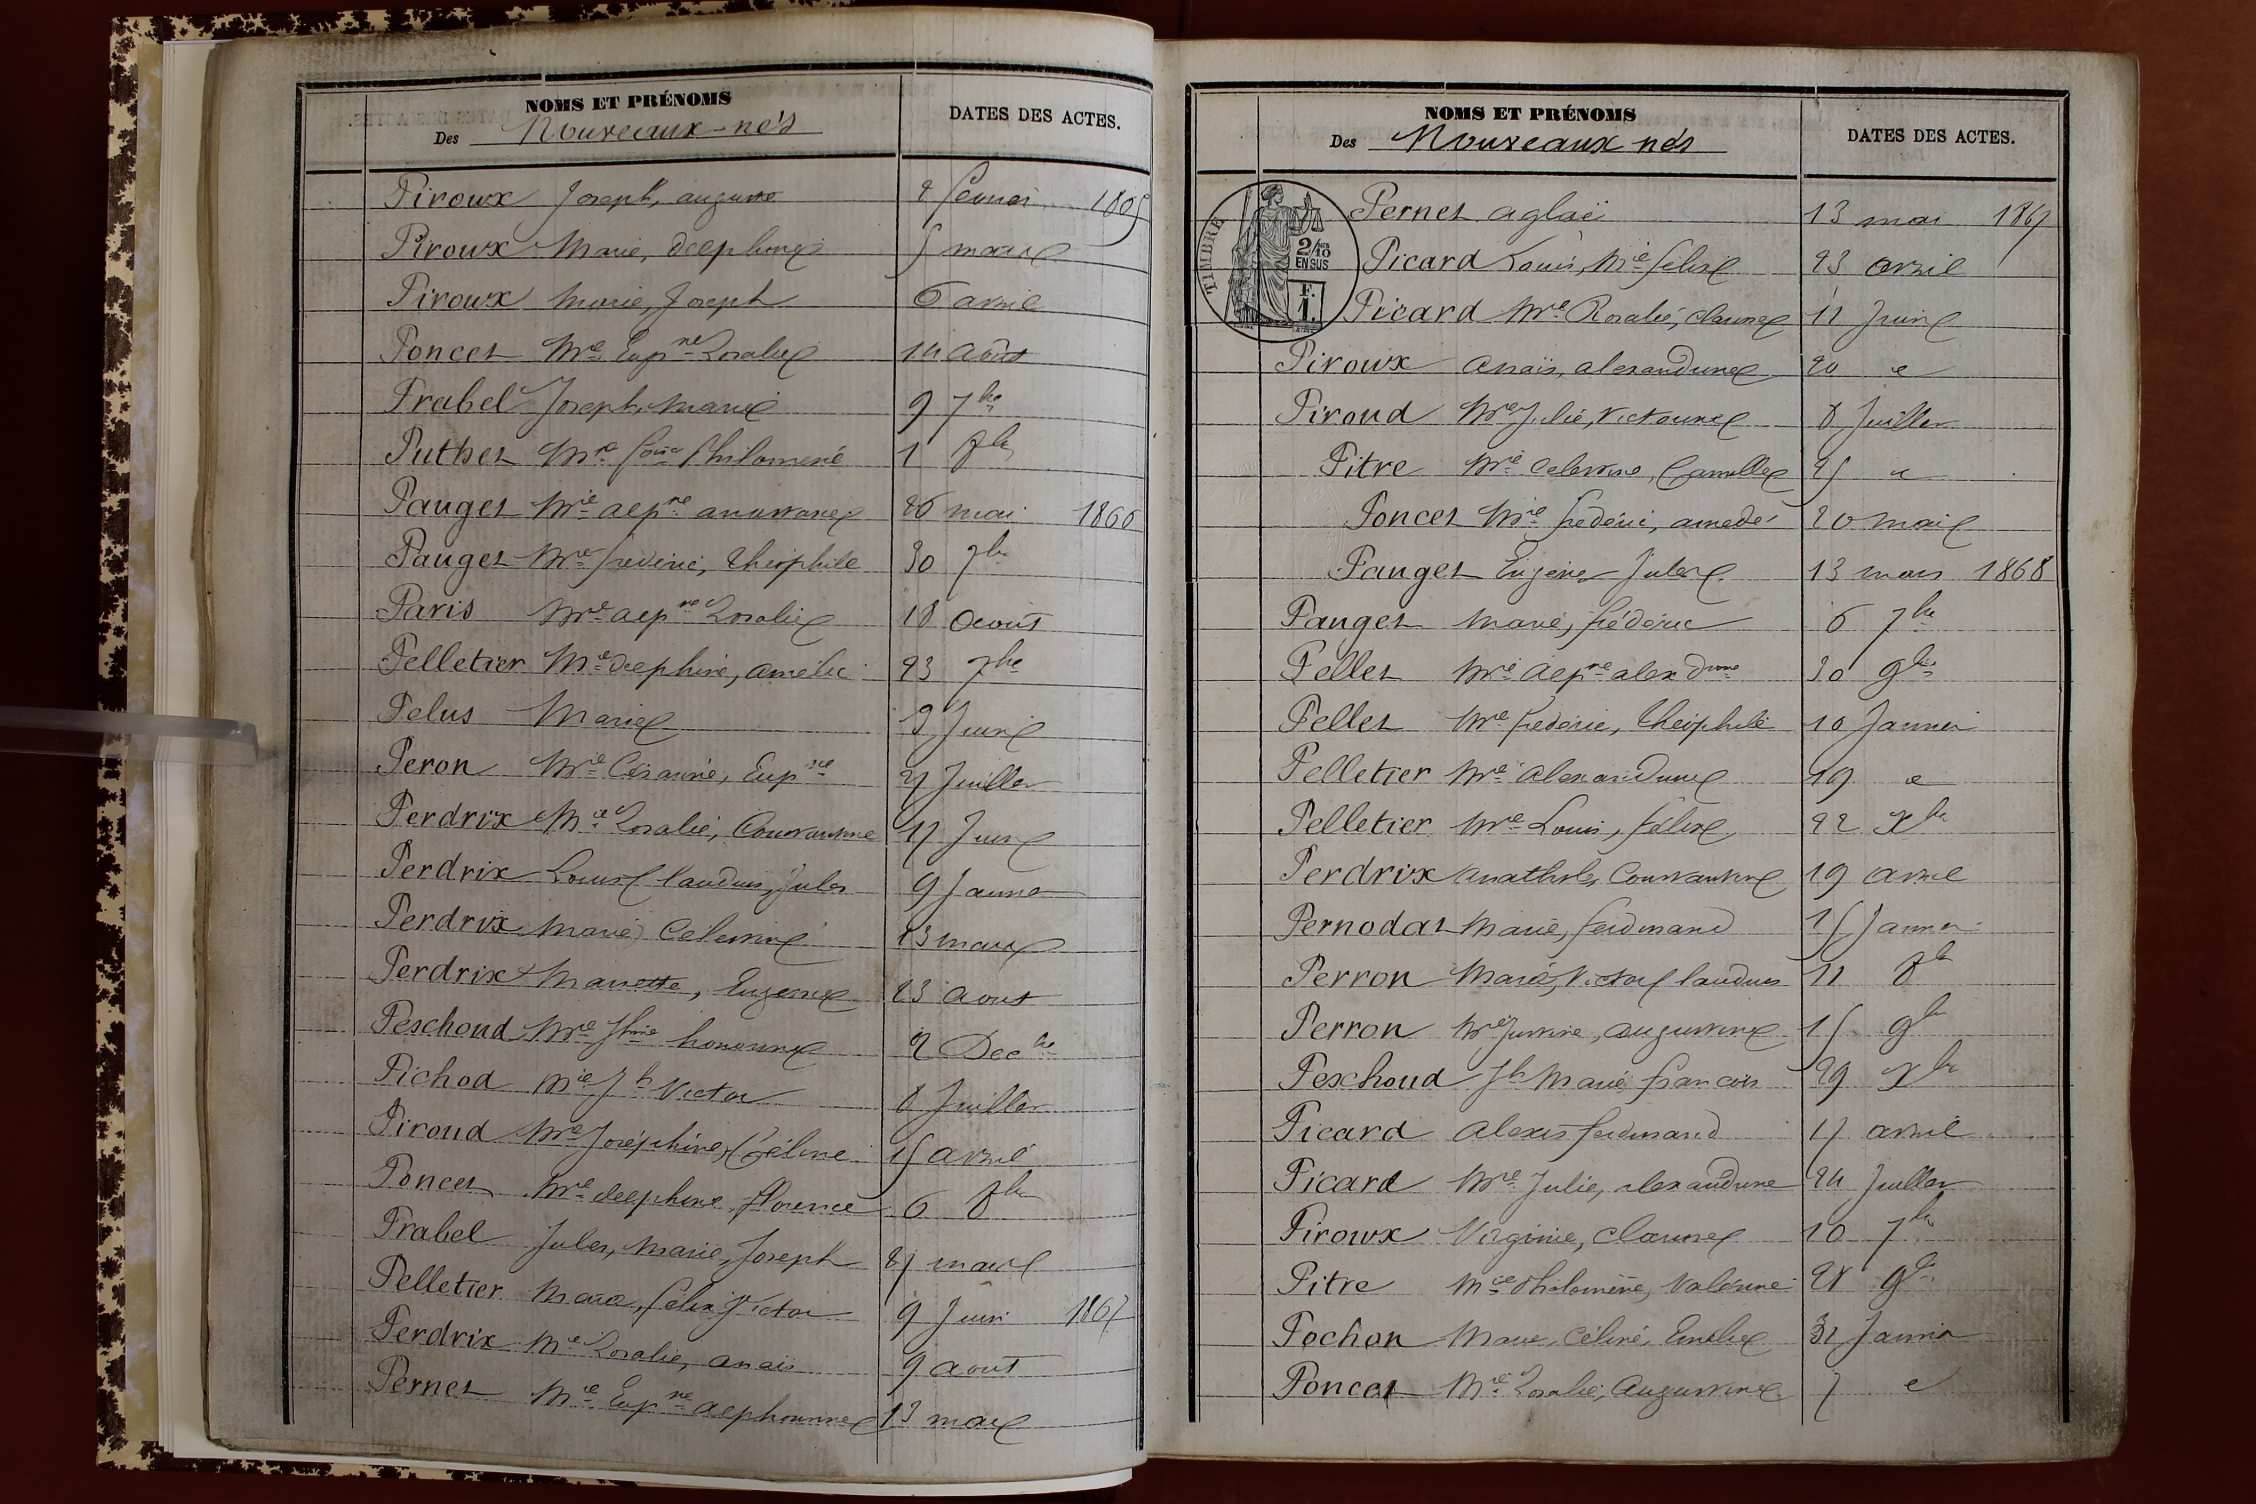 NOMS ET PRÉNOMS
Des Nouveaux-nés
DATES DES ACTES.
Piroux Joseph, auguste 2 fevrier 1865
Piroux Marie, delphine 5 mars
Piroux Marie, Joseph 6 avril
Poncet Mie Eupne Rosalie 14 août
Prabel Joseph, Marie 9 7bre
Puthet Mie Philomene 1 8b
Pauget Mie alpne 26 mai 1866
Pauget Mie frederic, théophile 30 7b
Paris Mie alpne Rosalie 18 aout
Pelletier Mie delphine, amelie 23 7bre
Pelus Marie 9 Juin
Peron Mie Cesarine, Eupne 27 Juillet
Perdrix Mie Rosalie, Constantine 17 Juin
Perdrix Louis Claudius, Jules 9 Janvier
Perdrix Marie Celestine 23 mars
Perdrix Mariette, Eugenie 23 aout
Peschoud Mie honorine 2 Decbre
Pichod Mie Jh Victor 8 Juillet
Piroud Mie Joséphine, Céline 15 avril
Poncet Mie delphine florence 6 8b
Prabel Jules, Marie, Joseph 27 mars
Pelletier Marie, felix Victor 9 Juin 1867
Perdrix Mie Rosalie, anaïs 9 aout
Pernet Mie Eupne alphonsine 13 mars
NOMS ET PRÉNOMS
Des Nouveaux nés
DATES DES ACTES.
TIMBRE
2/10
EN SUS
F.
1.
Pernet aglaé 13 mai 1867
Picard Louis, Mie felix 23 avril
Picard Mie Rosalie, clarine 11 Juin
Piroux anaïs, alexandrine 20 "
Piroud Mie Julie, Victorine 8 Juillet
Pitre Mie Celestine, Camille 25 "
Poncet Mie frédéric, amedé 20 mai
Pauget Eugène Jules 13 mars 1868
Pauget Marie, frédéric 6 7bre
Pellet Mie alpne alexdrine 30 9bre
Pellet Mie frederic, théophile 10 Janvier
Pelletier Mie alexandrine 19 "
Pelletier Mie Louis, félix 22 Xbre
Perdrix anathole, Constantin 19 avril
Pernodat Marie, ferdinand 15 Janvier
Perron Marie, Victor Claudius 11 8b
Perron Mie Justine, augustine 15 9b
Peschoud Jh Marie françois 29 Xbre
Picard alexis ferdinand 17 avril
Picard Mie Julie, alexandrine 24 Juillet
Piroux Virginie, clarine 10 7bre
Pitre Mie Philomène, Valérine 28 9b
Pochon Marie, Céline, Emelie 31 Janvier
Poncet Mie Rosalie, Augustine 7 "